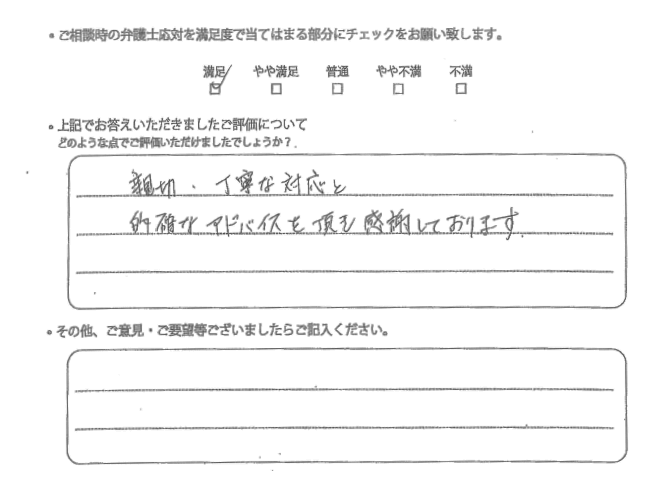 • ご相談時の弁護士応対を満足度で当てはまる部分にチェックをお願い致します。
満足 やや満足 普通 やや不満 不満
☑ ☐ ☐ ☐ ☐
• 上記でお答えいただきましたご評価について
どのような点でご評価いただけましたでしょうか？.
親切・丁寧な対応と
的確なアドバイスを頂き感謝しております.
• その他、ご意見・ご要望等ございましたらご記入ください。